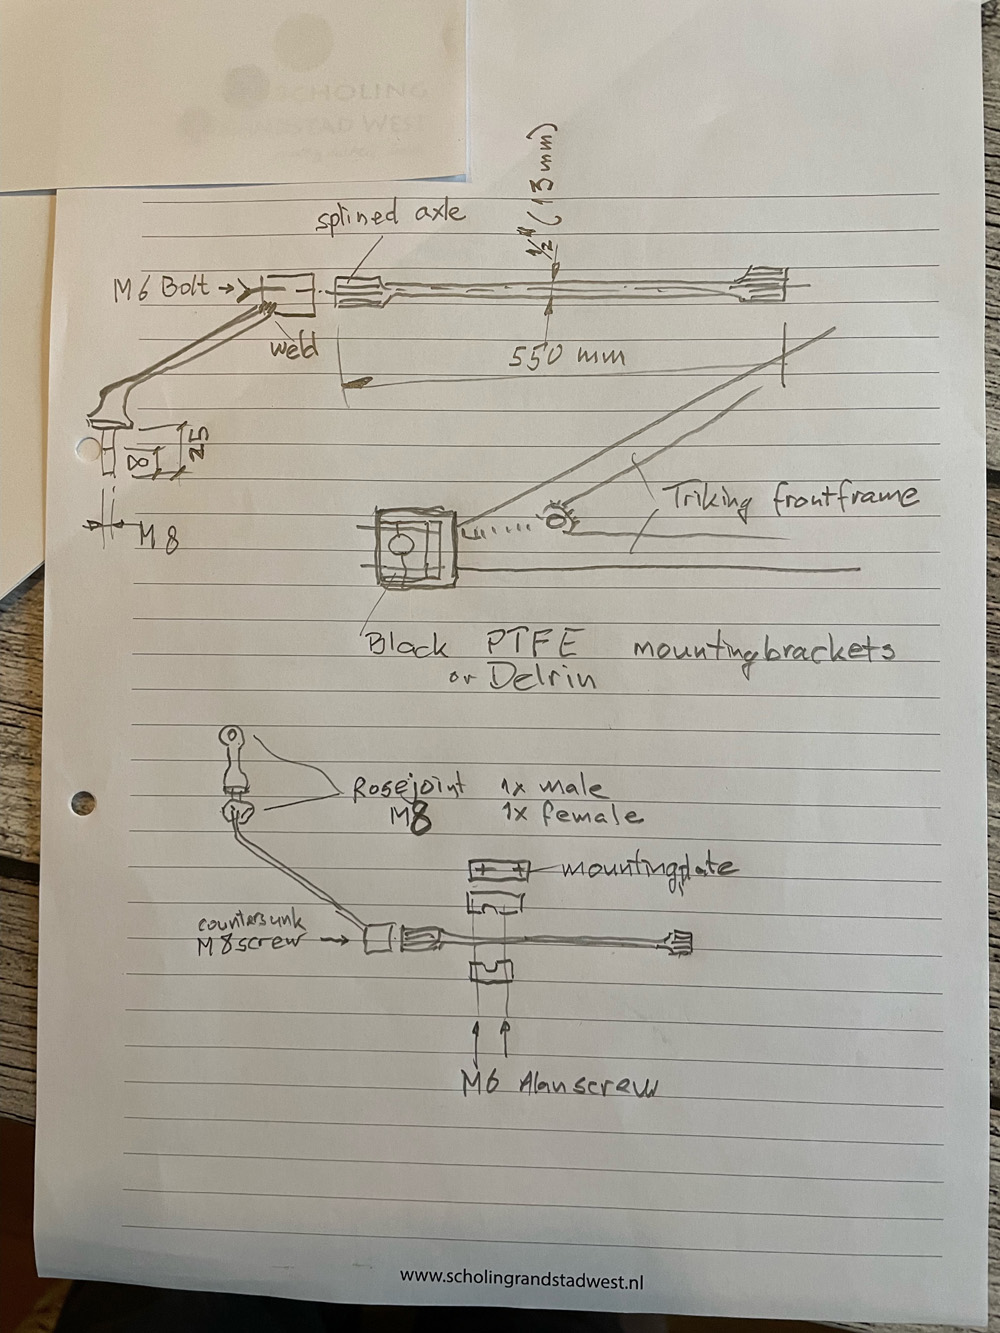 SCHOLING
STAD WEST
splined axle
1/2" (13mm)
M6 Bolt
weld
550 mm
25
8
M8
Triking frontframe
Black PTFE mountingbrackets
or Delrin
Rosejoint 1x male
M8 1x female
mountingplate
countersunk
M8 screw
M6 Alanscrew
www.scholingrandstadwest.nl